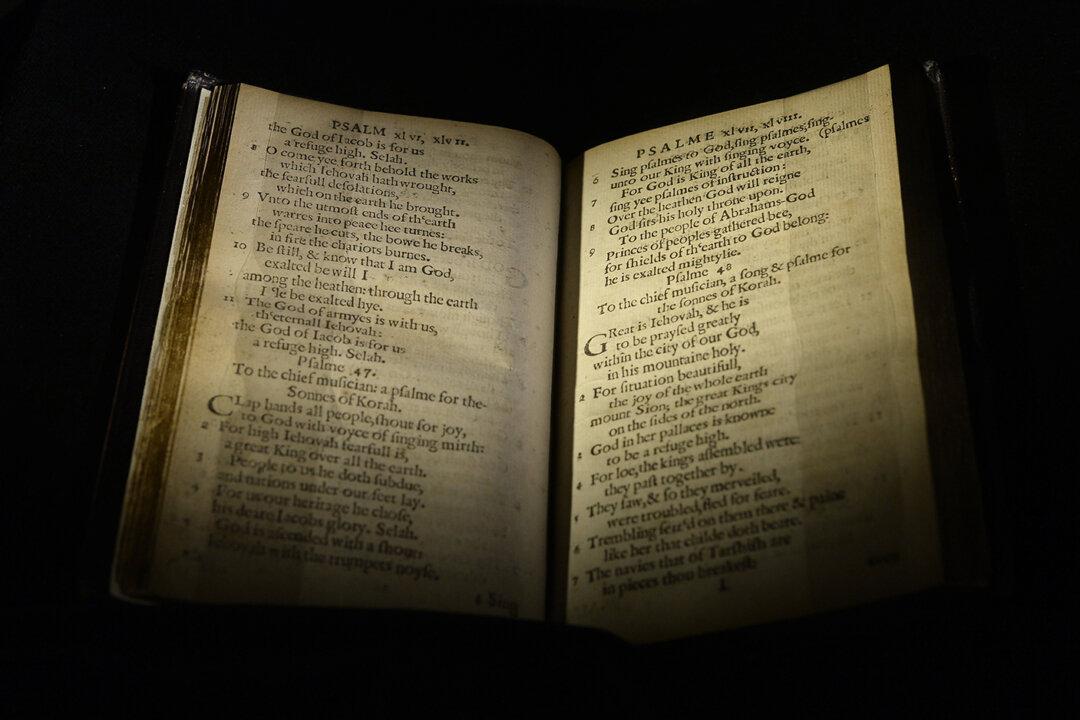 PSALM xlvi, xlvii.
the God of Iacob is for us
a refuge high. Selah.
8 O come yee forth behold the works
which Iehovah hath wrought,
the fearfull deſolations,
which on the earth he brought.
9 Vnto the utmoſt ends of th'earth
warres into peace hee turnes:
the ſpeare he cuts, the bowe he breaks,
in fire the chariots burnes.
10 Be ſtill, & know that I am God,
exalted be will I
among the heathen: through the earth
I'le be exalted hye.
11 The God of armyes is with us,
th'eternall Iehovah:
the God of Iacob is for us
a refuge high. Selah.
Pſalme 47.
To the chief muſician: a pſalme for the
Sonnes of Korah.
CLap hands all people, ſhout for joy,
to God with voyce of ſinging mirth:
2 For high Iehovah fearfull is,
a great King over all the earth.
3 People to us he doth ſubdue,
and nations under our feet lay.
4 For us our heritage he choſe,
his deare Iacobs glory. Selah.
5 God is aſcended with a ſhout:
Iehovah with the trumpets noyſe.
6 Sing
PSALME xlvii, xlviii.
6 Sing pſalmes to God, ſing pſalmes, ſing-
unto our King with ſinging voyce. (pſalmes
7 For God is King of all the earth,
ſing yee pſalmes of inſtruction:
8 Over the heathen God will reigne
God ſits his holy throne upon.
9 To the people of Abrahams God
Princes of peoples gathered bee,
for ſhields of th'earth to God belong:
he is exalted mightylie.
Pſalme 48
To the chief muſician, a ſong & pſalme for
the ſonnes of Korah.
GReat is Iehovah, & he is
to be prayſed greatly
within the city of our God,
in his mountaine holy.
2 For ſituation beautifull,
the joy of the whole earth
mount Sion; the great Kings city
on the ſides of the north.
3 God in her pallaces is knowne
to be a refuge high.
4 For loe, the kings aſſembled were:
they paſt together by.
5 They ſaw, & ſo they merveiled,
were troubled, fled for feare.
6 Trembling ſeiz'd on them there & paine
like her that childe doth beare.
7 The navies that of Tarſhiſh are
in pieces thou breakeſt:
I